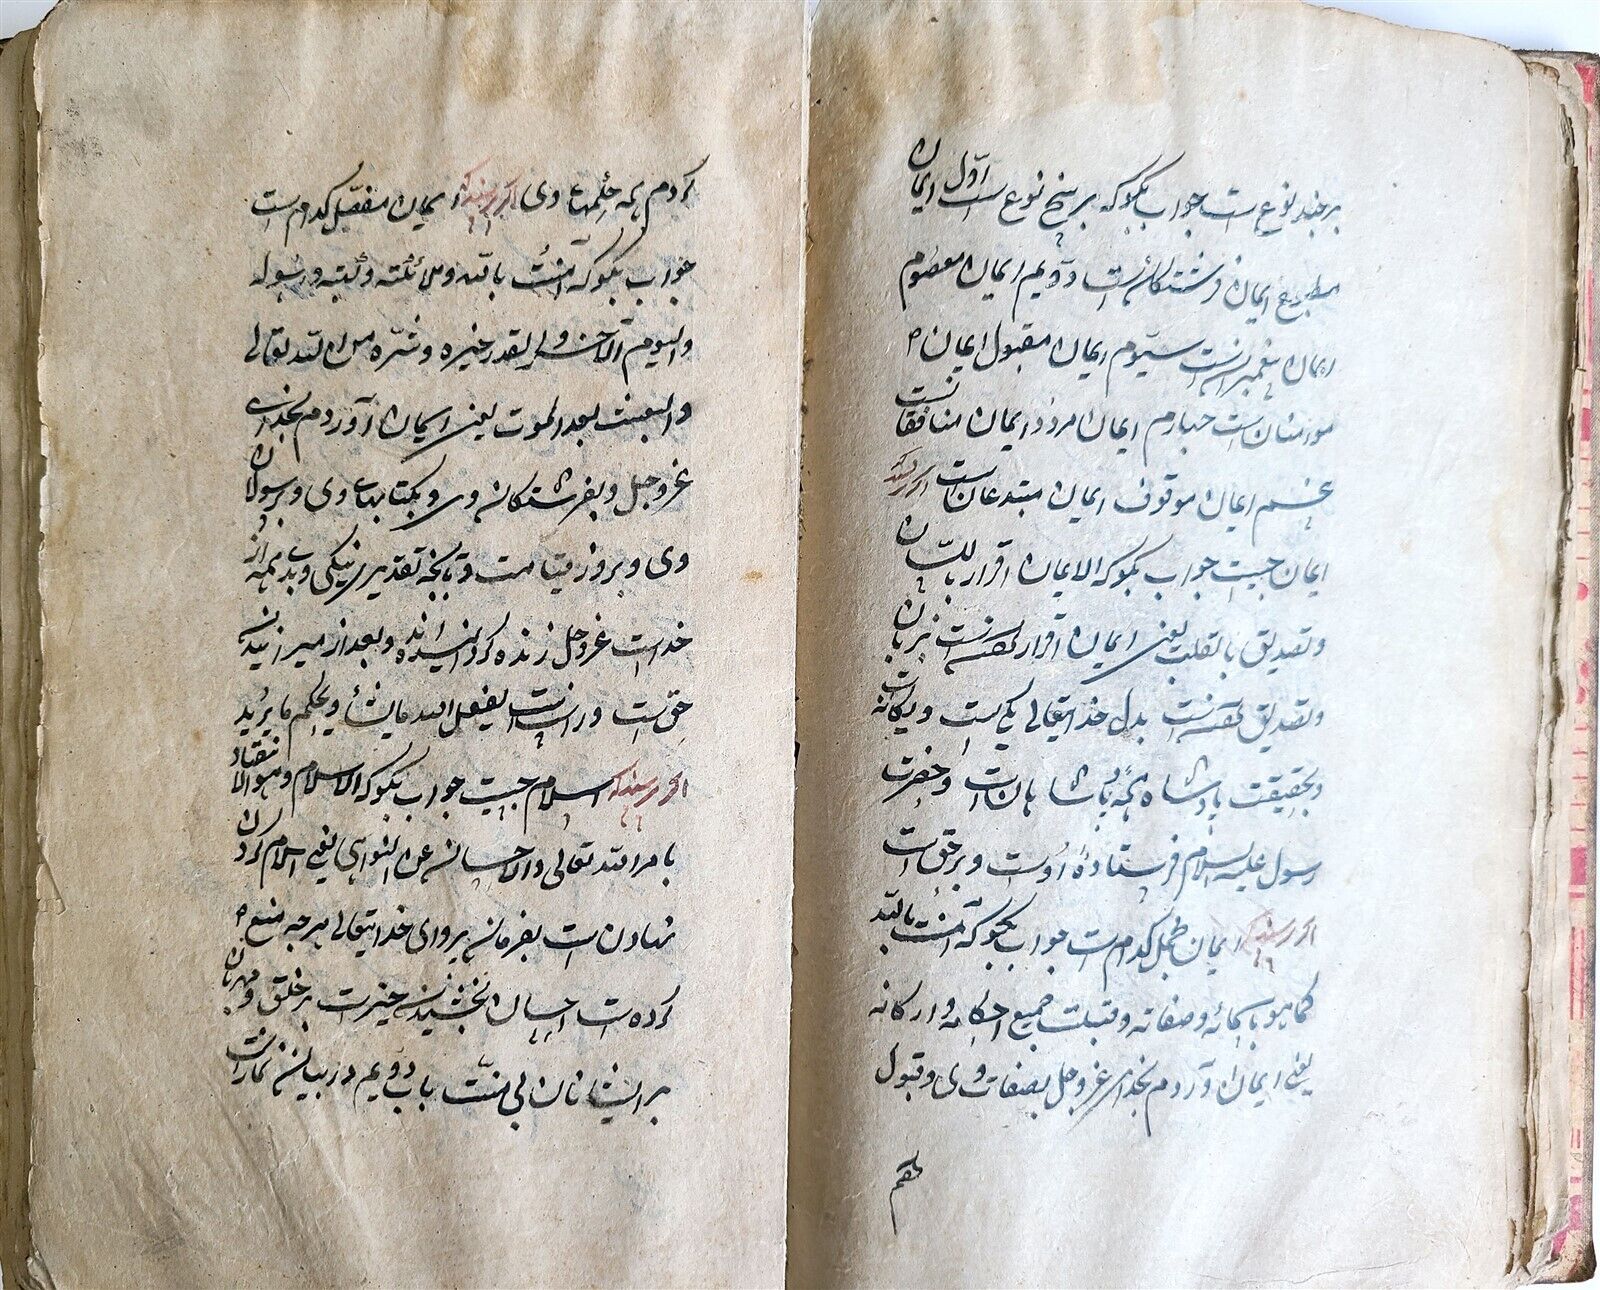 بر چند نوع است جواب بگو که بر پنج نوع است اوّل ایمان
مطبوع ایمان فرشتگان است دویم ایمان معصوم
ایمان پیغمبران است سیّوم ایمان مقبول ایمان
مؤمنان است چهارم ایمان مردود ایمان منافقانست
پنجم ایمان موقوف ایمان مبتدعان است اگر پرسند
ایمان چیست جواب بگو که الایمان اقرار باللسان
و تصدیق بالقلب یعنی ایمان اقرار گفتنست بزبان
و تصدیق گفتنست بدل خدایتعالی یکیست و یگانه است
و بحقیقت پادشاه همه پادشاهان است و حضرت
رسول علیه السلام فرستادهٔ اوست و برحق است
اگر پرسند که ایمان مجمل کدام است جواب بگو که آمنت بالله
کما هو باسمائه و صفاته و قبلت جمیع احکامه و ارکانه
یعنی ایمان آوردم بخدای عزوجل بصفات وی و قبول
کردم همه حکمهاء وی اگر پرسند که ایمان مفصّل کدام است
جواب بگو که آمنتُ بالله وملائکته وکتبه ورسوله
والیوم الآخر والقدر خیره وشرّه من الله تعالی
والبعث بعد الموت یعنی ایمان آوردم بخدای
عزوجل و بفرشتگان وی و بکتابهاء وی و برسولان
وی و بروز قیامت و بآنچه تقدیر نیکی و بدی همه از
خداست عزوجل زنده گردانیده و بعد از میرانیدن
حق است و راست است یفعل الله مایشاء ویحکم مایرید
اگر پرسند که اسلام چیست جواب بگو که الاسلام وهو الانقیاد
بامر الله تعالی والاحسان عن النواهی یعنی اسلام گردن
نهادن است بفرمان خدایتعالی هرچه منع
کرده است احسان بخشیدن خیرست بر خلق و مهربان
بر ایشانان بی منّت باب دویم در بیان نماز است